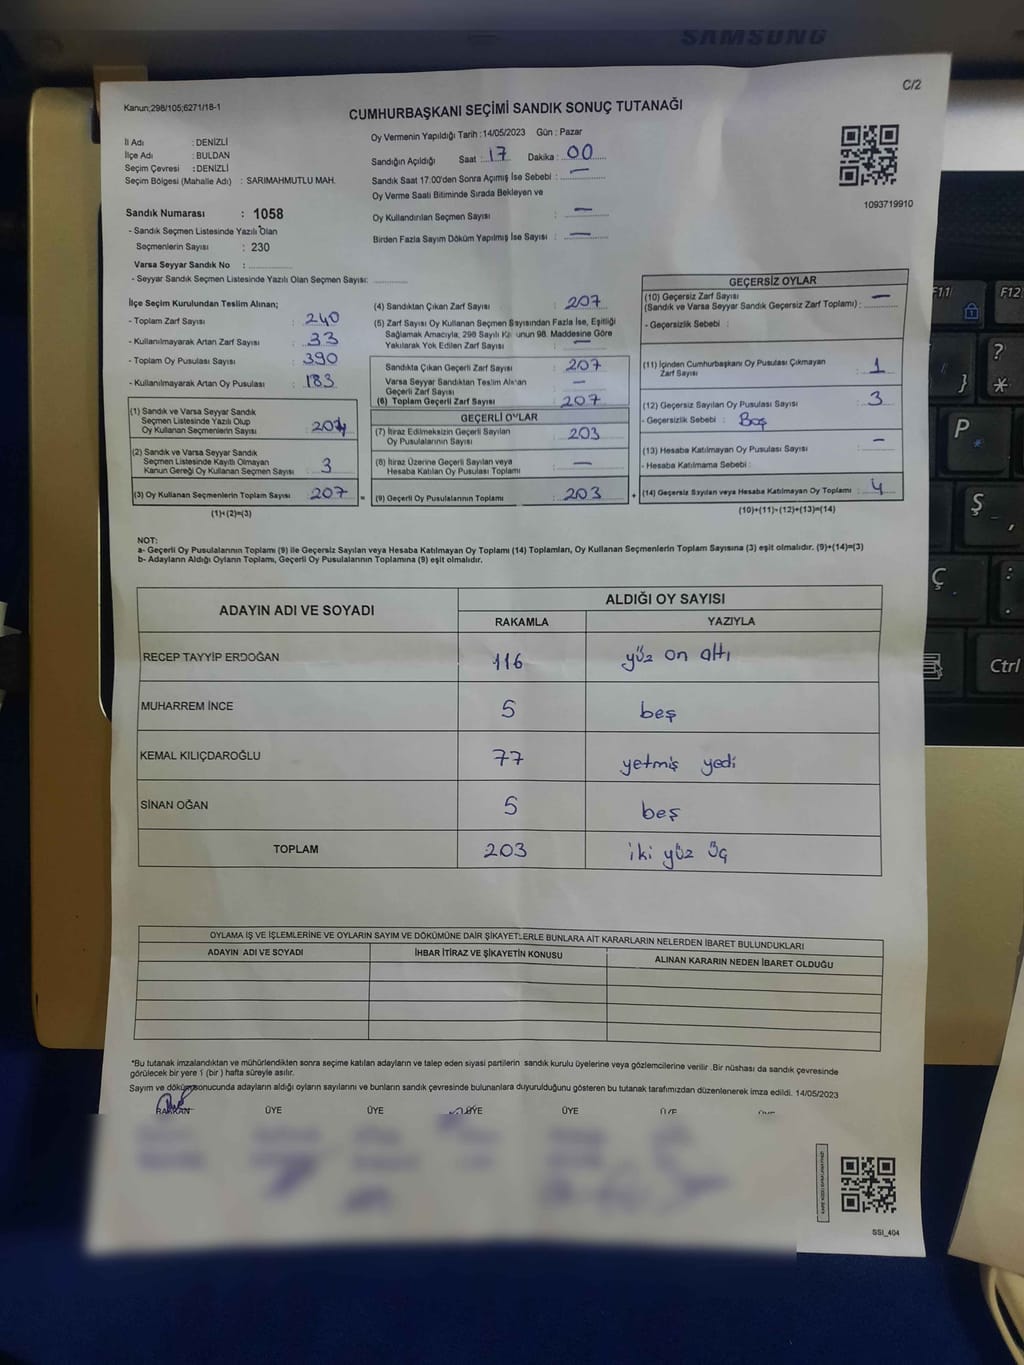 SAMSUNG
C/2
Kanun;298/105;6271/18-1
CUMHURBAŞKANI SEÇİMİ SANDIK SONUÇ TUTANAĞI
İl Adı : DENİZLİ
İlçe Adı : BULDAN
Seçim Çevresi : DENİZLİ
Seçim Bölgesi (Mahalle Adı) : SARIMAHMUTLU MAH.
Oy Vermenin Yapıldığı Tarih : 14/05/2023 Gün : Pazar
Sandığın Açıldığı Saat : 17 Dakika : 00
Sandık Saat 17.00'den Sonra Açımış İse Sebebi : —
Oy Verme Saati Bitiminde Sırada Bekleyen ve
Oy Kullandırılan Seçmen Sayısı : —
Birden Fazla Sayım Döküm Yapılmış İse Sayısı : —
1093719910
Sandık Numarası : 1058
- Sandık Seçmen Listesinde Yazılı Olan
Seçmenlerin Sayısı : 230
Varsa Seyyar Sandık No :
- Seyyar Sandık Seçmen Listesinde Yazılı Olan Seçmen Sayısı:
İlçe Seçim Kurulundan Teslim Alınan;
- Toplam Zarf Sayısı : 240
- Kullanılmayarak Artan Zarf Sayısı : 33
- Toplam Oy Pusulası Sayısı : 390
- Kullanılmayarak Artan Oy Pusulası : 183
(1) Sandık ve Varsa Seyyar Sandık
Seçmen Listesinde Yazılı Olup
Oy Kullanan Seçmenlerin Sayısı : 204
(2) Sandık ve Varsa Seyyar Sandık
Seçmen Listesinde Kayıtlı Olmayan
Kanun Gereği Oy Kullanan Seçmen Sayısı : 3
(3) Oy Kullanan Seçmenlerin Toplam Sayısı : 207
(1)+(2)=(3)
(4) Sandıktan Çıkan Zarf Sayısı : 207
(5) Zarf Sayısı Oy Kullanan Seçmen Sayısından Fazla İse, Eşitliği
Sağlamak Amacıyla; 298 Sayılı Kanunun 98. Maddesine Göre
Yakılarak Yok Edilen Zarf Sayısı : —
Sandıkta Çıkan Geçerli Zarf Sayısı : 207
Varsa Seyyar Sandıktan Teslim Alınan
Geçerli Zarf Sayısı : —
(6) Toplam Geçerli Zarf Sayısı : 207
GEÇERLİ OYLAR
(7) İtiraz Edilmeksizin Geçerli Sayılan
Oy Pusulalarının Sayısı : 203
(8) İtiraz Üzerine Geçerli Sayılan veya
Hesaba Katılan Oy Pusulası Toplamı : —
= (9) Geçerli Oy Pusulalarının Toplamı : 203
GEÇERSİZ OYLAR
(10) Geçersiz Zarf Sayısı
(Sandık ve Varsa Seyyar Sandık Geçersiz Zarf Toplamı) : —
- Geçersizlik Sebebi :
(11) İçinden Cumhurbaşkanı Oy Pusulası Çıkmayan
Zarf Sayısı : 1
(12) Geçersiz Sayılan Oy Pusulası Sayısı : 3
- Geçersizlik Sebebi : Boş
(13) Hesaba Katılmayan Oy Pusulası Sayısı : —
- Hesaba Katılmama Sebebi :
+ (14) Geçersiz Sayılan veya Hesaba Katılmayan Oy Toplamı : 4
(10)+(11)+(12)+(13)=(14)
NOT:
a- Geçerli Oy Pusulalarının Toplamı (9) ile Geçersiz Sayılan veya Hesaba Katılmayan Oy Toplamı (14) Toplamları, Oy Kullanan Seçmenlerin Toplam Sayısına (3) eşit olmalıdır. (9)+(14)=(3)
b- Adayların Aldığı Oyların Toplamı, Geçerli Oy Pusulalarının Toplamına (9) eşit olmalıdır.
ADAYIN ADI VE SOYADI
ALDIĞI OY SAYISI
RAKAMLA YAZIYLA
RECEP TAYYİP ERDOĞAN 116 yüz on altı
MUHARREM İNCE 5 beş
KEMAL KILIÇDAROĞLU 77 yetmiş yedi
SİNAN OĞAN 5 beş
TOPLAM 203 iki yüz üç
OYLAMA İŞ VE İŞLEMLERİNE VE OYLARIN SAYIM VE DÖKÜMÜNE DAİR ŞİKAYETLERLE BUNLARA AİT KARARLARIN NELERDEN İBARET BULUNDUKLARI
ADAYIN ADI VE SOYADI İHBAR İTİRAZ VE ŞİKAYETİN KONUSU ALINAN KARARIN NEDEN İBARET OLDUĞU
*Bu tutanak imzalandıktan ve mühürlendikten sonra seçime katılan adayların ve talep eden siyasi partilerin sandık kurulu üyelerine veya gözlemcilerine verilir .Bir nüshası da sandık çevresinde
görülecek bir yere 1 (bir ) hafta süreyle asılır.
Sayım ve döküm sonucunda adayların aldığı oyların sayılarını ve bunların sandık çevresinde bulunanlara duyurulduğunu gösteren bu tutanak tarafımızdan düzenlenerek imza edildi. 14/05/2023
BAŞKAN ÜYE ÜYE ÜYE ÜYE ÜYE
SSI_404
F11
F12
?
*
}
P
Ş
Ç
Ctrl